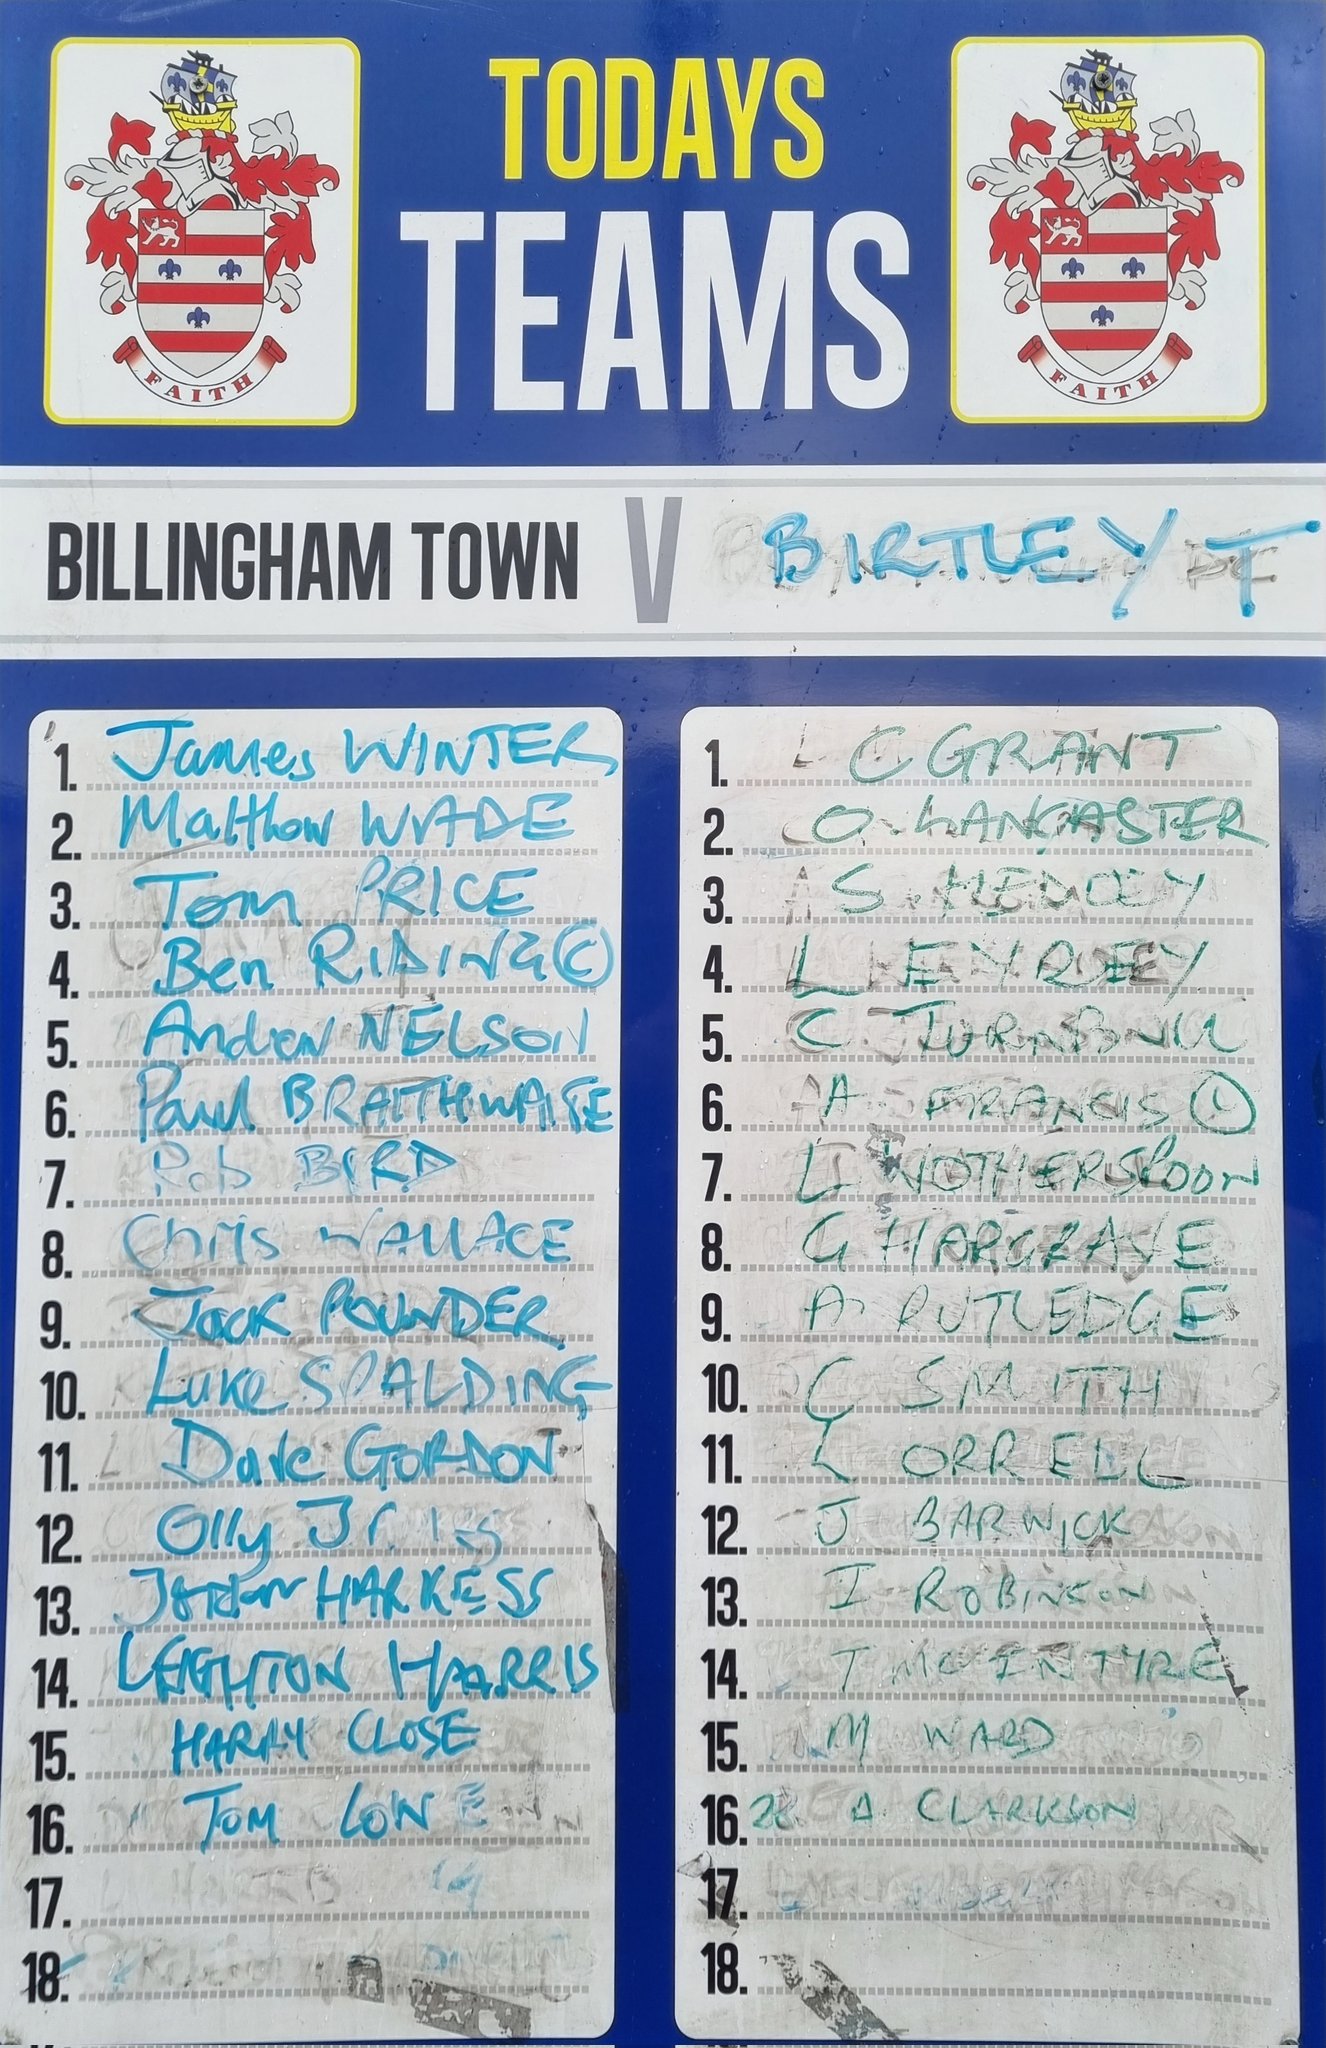 TODAYS
TEAMS
FAITH
FAITH
BILLINGHAM TOWN V BIRTLEY T
1. James WINTER
2. Matthew WADE
3. Tom PRICE
4. Ben RIDING C
5. Andrew NELSON
6. Paul BRAITHWAITE
7. Rob BIRD
8. Chris WALLACE
9. Jack POUNDER
10. Luke SPALDING
11. Dave GORDON
12. Olly
13. Jordan HARKESS
14. LEIGHTON HARRIS
15. HARRY CLOSE
16. TOM LOWE
17.
18.
1. C GRANT
2. O. LANCASTER
3. S. HEDLEY
4. L
5. C TURNBULL
6. A FRANCIS C
7. L WOTHERSPOON
8. G HARGRAVE
9. A. RUTLEDGE
10. C SMITH
11. L ORRELL
12. J. BARWICK
13. I ROBINSON
14. T MCINTYRE
15. M WARD
16. A. CLARKSON
17.
18.